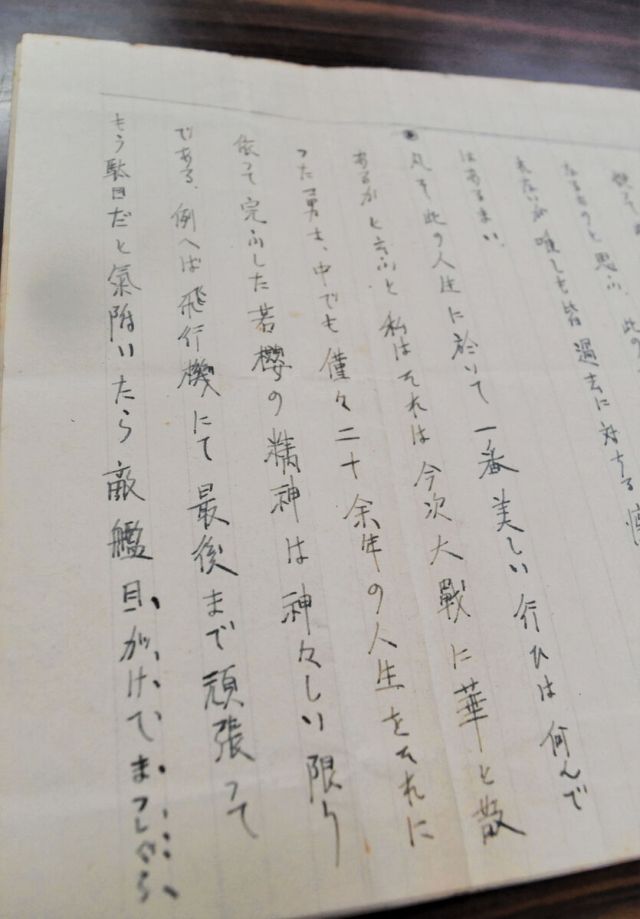 なるものと思ふ、此の
ないが唯しも皆過去に対する
はあるまい、
凡そ此の人生に於いて一番美しい行ひは何んで
あるかと云ふと私はそれは今次大戰に華と散
つた勇士、中でも僅々二十余年の人生をそれに
依つて完ふした若櫻の精神は神々しい限り
である、例へば飛行機にて最後まで頑張つて
もう駄目だと氣附いたら敵艦目がけてまつしぐら